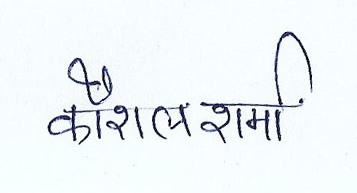 कौशल शर्मा